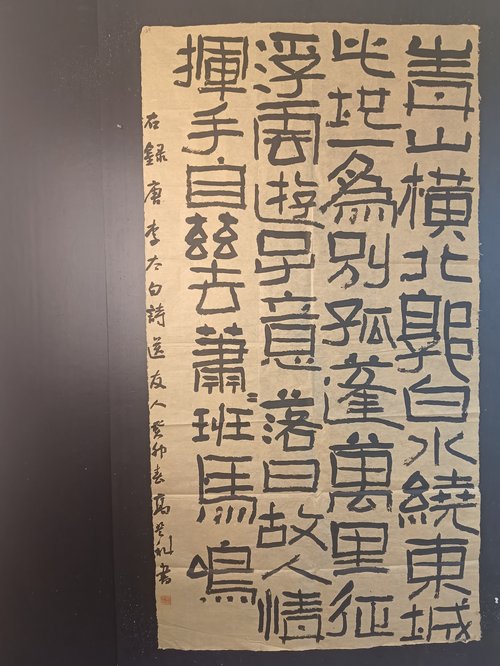 青山橫北郭白水繞東城
此地一為別孤蓬萬里征
浮雲遊子意落日故人情
揮手自茲去蕭〻班馬鳴
右錄唐李太白詩送友人癸卯春高書